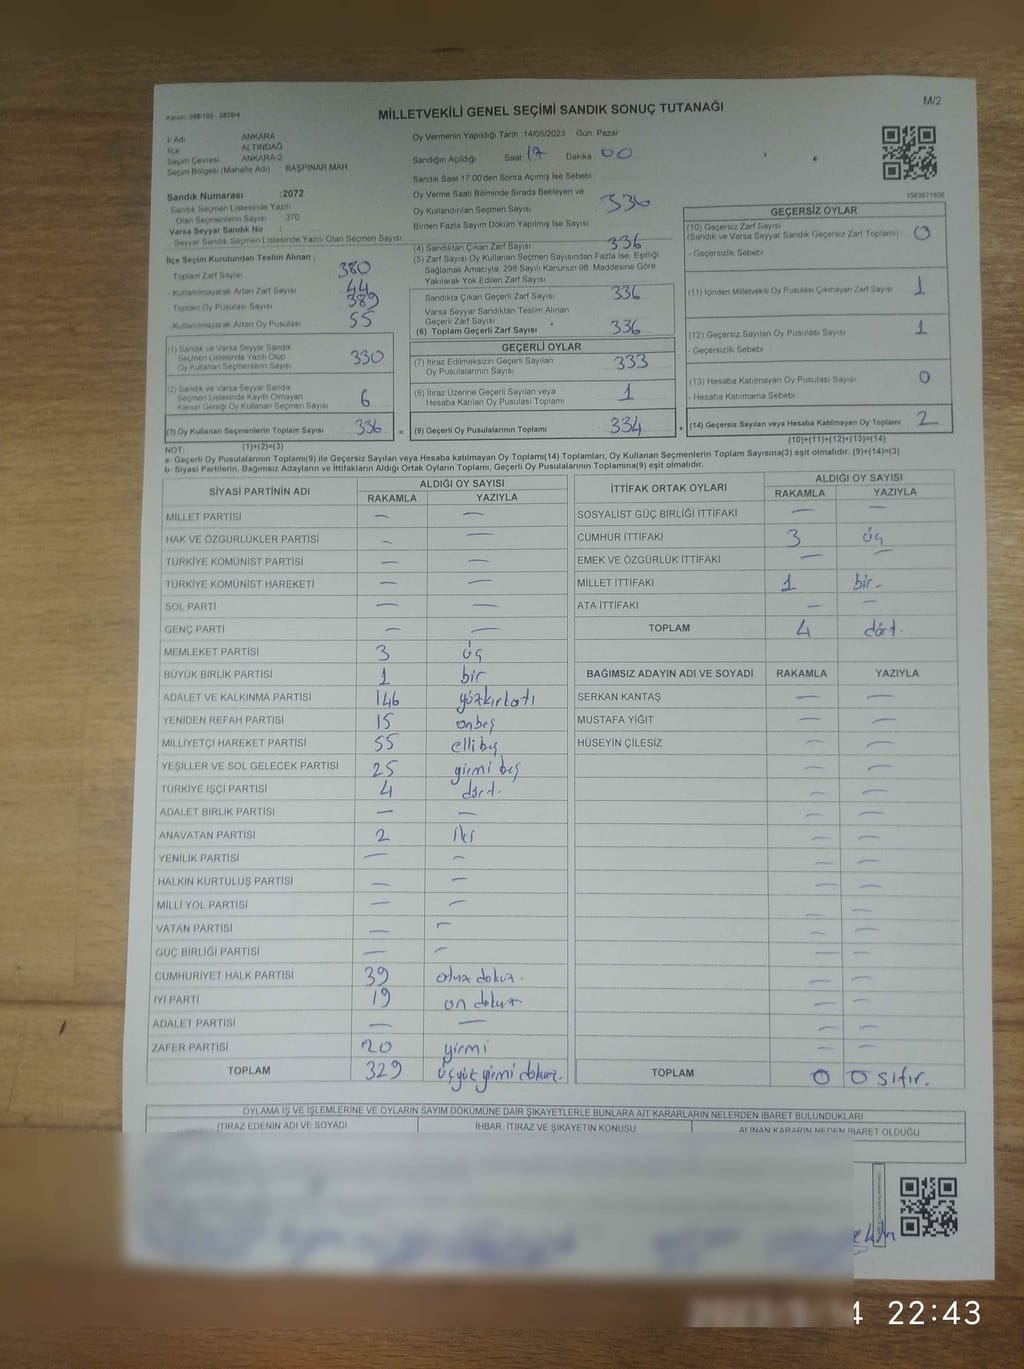 Kanun: 298/105 - 2839/4
MİLLETVEKİLİ GENEL SEÇİMİ SANDIK SONUÇ TUTANAĞI
M/2
İl Adı ANKARA
İlçe ALTINDAĞ
Seçim Çevresi ANKARA-2
Seçim Bölgesi (Mahalle Adı) BAŞPINAR MAH
Sandık Numarası :2072
- Sandık Seçmen Listesinde Yazılı
Olan Seçmenlerin Sayısı : 370
Varsa Seyyar Sandık No :
- Seyyar Sandık Seçmen Listesinde Yazılı Olan Seçmen Sayısı:
İlçe Seçim Kurulundan Teslim Alınan ;
- Toplam Zarf Sayısı 380
- Kullanılmayarak Artan Zarf Sayısı 44
- Toplam Oy Pusulası Sayısı 389
- Kullanılmayarak Artan Oy Pusulası 55
(1) Sandık ve Varsa Seyyar Sandık
Seçmen Listesinde Yazılı Olup
Oy Kullanan Seçmenlerin Sayısı 330
(2) Sandık ve Varsa Seyyar Sandık
Seçmen Listesinde Kayıtlı Olmayan
Kanun Gereği Oy Kullanan Seçmen Sayısı 6
(3) Oy Kullanan Seçmenlerin Toplam Sayısı 336 =
(1)+(2)=(3)
Oy Vermenin Yapıldığı Tarih :14/05/2023 Gün: Pazar
Sandığın Açıldığı Saat 17 Dakika 00
Sandık Saat 17:00'den Sonra Açılmış İse Sebebi :
Oy Verme Saati Bitiminde Sırada Bekleyen ve
Oy Kullandırılan Seçmen Sayısı 336
Birden Fazla Sayım Döküm Yapılmış İse Sayısı :
(4) Sandıktan Çıkan Zarf Sayısı 336
(5) Zarf Sayısı Oy Kullanan Seçmen Sayısından Fazla İse, Eşitliği
Sağlamak Amacıyla, 298 Sayılı Kanunun 98. Maddesine Göre
Yakılarak Yok Edilen Zarf Sayısı
Sandıkta Çıkan Geçerli Zarf Sayısı 336
Varsa Seyyar Sandıktan Teslim Alınan
Geçerli Zarf Sayısı
(6) Toplam Geçerli Zarf Sayısı 336
GEÇERLİ OYLAR
(7) İtiraz Edilmeksizin Geçerli Sayılan
Oy Pusulalarının Sayısı 333
(8) İtiraz Üzerine Geçerli Sayılan veya
Hesaba Katılan Oy Pusulası Toplamı 1
(9) Geçerli Oy Pusulalarının Toplamı 334 +
1069871806
GEÇERSİZ OYLAR
(10) Geçersiz Zarf Sayısı
(Sandık ve Varsa Seyyar Sandık Geçersiz Zarf Toplamı) 0
- Geçersizlik Sebebi :
(11) İçinden Milletvekili Oy Pusulası Çıkmayan Zarf Sayısı 1
(12) Geçersiz Sayılan Oy Pusulası Sayısı 1
- Geçersizlik Sebebi :
(13) Hesaba Katılmayan Oy Pusulası Sayısı 0
- Hesaba Katılmama Sebebi :
(14) Geçersiz Sayılan veya Hesaba Katılmayan Oy Toplamı 2
(10)+(11)+(12)+(13)=(14)
NOT:
a- Geçerli Oy Pusulalarının Toplamı(9) ile Geçersiz Sayılan veya Hesaba katılmayan Oy Toplamı(14) Toplamları, Oy Kullanan Seçmenlerin Toplam Sayısına(3) eşit olmalıdır. (9)+(14)=(3)
b- Siyasi Partilerin, Bağımsız Adayların ve İttifakların Aldığı Ortak Oyların Toplamı, Geçerli Oy Pusulalarının Toplamına(9) eşit olmalıdır.
SİYASİ PARTİNİN ADI ALDIĞI OY SAYISI
RAKAMLA YAZIYLA
MİLLET PARTİSİ — —
HAK VE ÖZGÜRLÜKLER PARTİSİ — —
TÜRKİYE KOMÜNİST PARTİSİ — —
TÜRKİYE KOMÜNİST HAREKETİ — —
SOL PARTİ — —
GENÇ PARTİ — —
MEMLEKET PARTİSİ 3 üç
BÜYÜK BİRLİK PARTİSİ 1 bir
ADALET VE KALKINMA PARTİSİ 146 yüzkırkatı
YENİDEN REFAH PARTİSİ 15 onbeş
MİLLİYETÇİ HAREKET PARTİSİ 55 ellibeş
YEŞİLLER VE SOL GELECEK PARTİSİ 25 yirmi beş
TÜRKİYE İŞÇİ PARTİSİ 4 dört.
ADALET BİRLİK PARTİSİ — —
ANAVATAN PARTİSİ 2 İki
YENİLİK PARTİSİ — —
HALKIN KURTULUŞ PARTİSİ — —
MİLLİ YOL PARTİSİ — —
VATAN PARTİSİ — —
GÜÇ BİRLİĞİ PARTİSİ — —
CUMHURİYET HALK PARTİSİ 39 otuz dokuz.
İYİ PARTİ 19 on dokuz
ADALET PARTİSİ — —
ZAFER PARTİSİ 20 yirmi
TOPLAM 329 üçyüz yirmi dokuz.
İTTİFAK ORTAK OYLARI ALDIĞI OY SAYISI
RAKAMLA YAZIYLA
SOSYALİST GÜÇ BİRLİĞİ İTTİFAKI — —
CUMHUR İTTİFAKI 3 üç
EMEK VE ÖZGÜRLÜK İTTİFAKI — —
MİLLET İTTİFAKI 1 bir.
ATA İTTİFAKI — —
TOPLAM 4 dört.
BAĞIMSIZ ADAYIN ADI VE SOYADI RAKAMLA YAZIYLA
SERKAN KANTAŞ — —
MUSTAFA YİĞİT — —
HÜSEYİN ÇİLESİZ — —
TOPLAM 0 0 sıfır.
OYLAMA İŞ VE İŞLEMLERİNE VE OYLARIN SAYIM DÖKÜMÜNE DAİR ŞİKAYETLERLE BUNLARA AİT KARARLARIN NELERDEN İBARET BULUNDUKLARI
İTİRAZ EDENİN ADI VE SOYADI İHBAR, İTİRAZ VE ŞİKAYETİN KONUSU ALINAN KARARIN NEDEN İBARET OLDUĞU
4 22:43